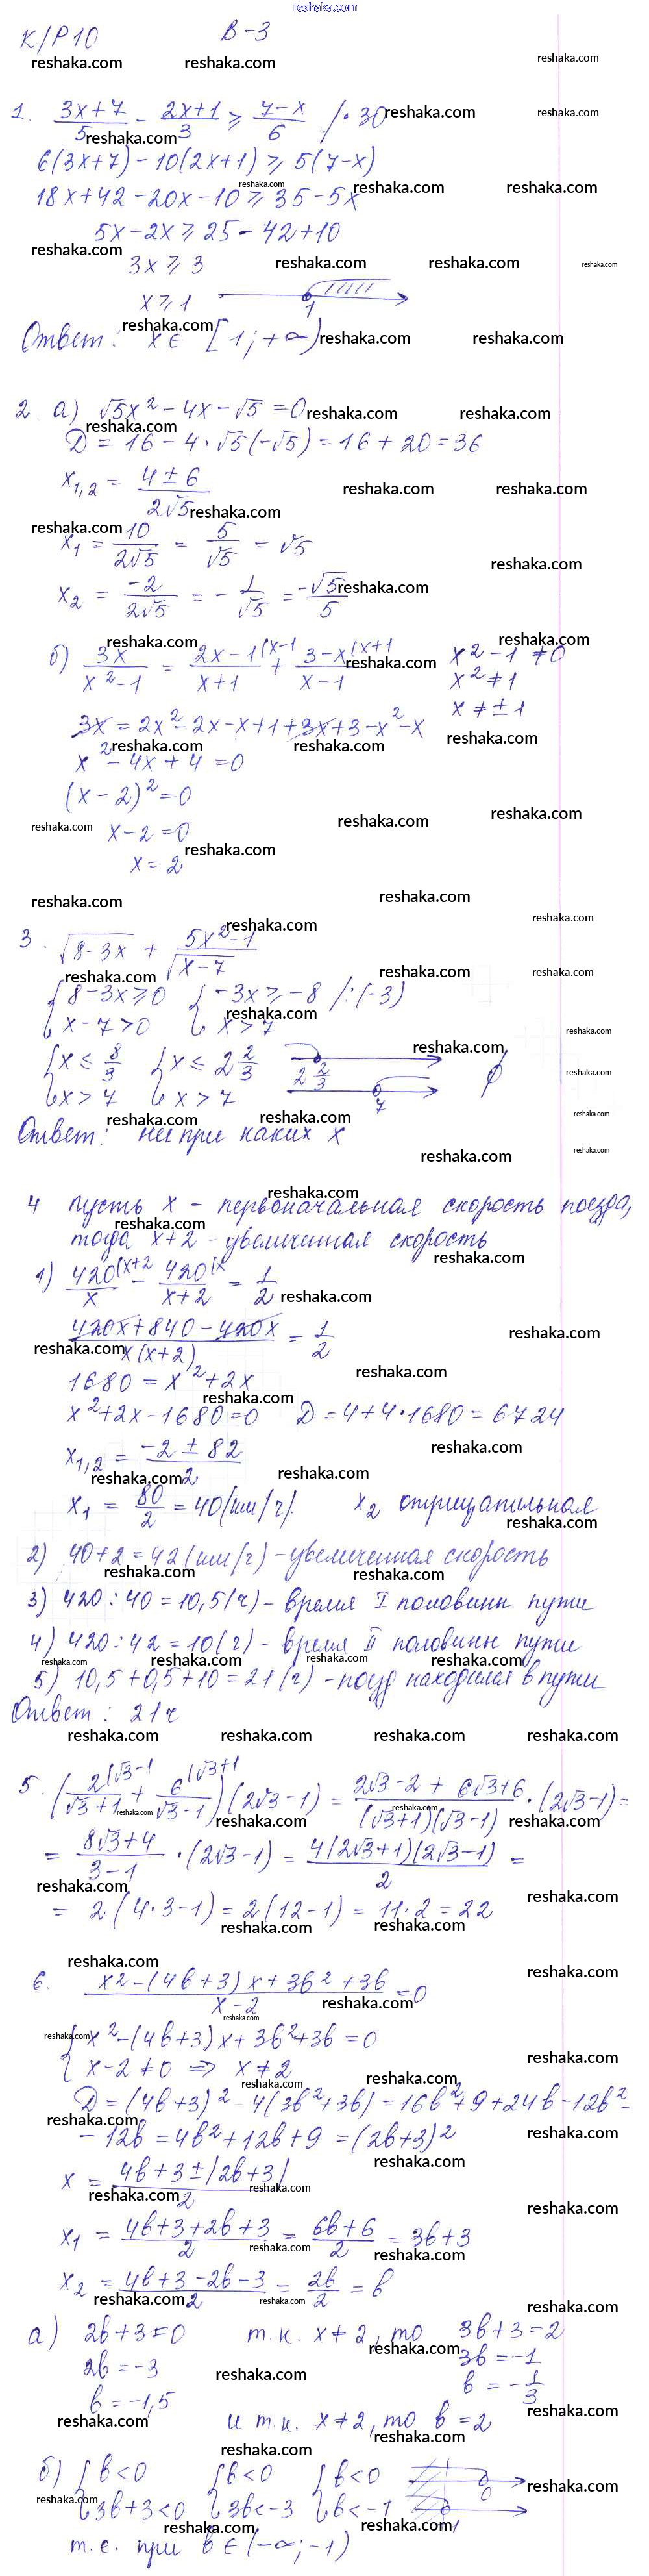 reshaka.com
К/Р10 В-3
1. (3x+7)/5 - (2x+1)/3 ≥ (7-x)/6 /·30
6(3x+7) - 10(2x+1) ≥ 5(7-x)
18x+42-20x-10 ≥ 35-5x
5x-2x ≥ 25-42+10
3x ≥ 3
x ≥ 1
1
Ответ: x ∈ [1; +∞)
2 а) √5x² - 4x - √5 = 0
D = 16 - 4·√5(-√5) = 16 + 20 = 36
x₁,₂ = (4 ± 6)/(2√5)
x₁ = 10/(2√5) = 5/√5 = √5
x₂ = -2/(2√5) = -1/√5 = -√5/5
б) 3x/(x²-1) = (2x-1)/(x+1) (x-1 + (3-x)/(x-1) (x+1 x²-1 ≠ 0
x² ≠ 1
x ≠ ±1
3x = 2x²-2x-x+1+3x+3-x²-x
x²-4x+4 = 0
(x-2)² = 0
x-2 = 0
x = 2
3. √(8-3x) + (5x²-1)/√(x-7)
{8-3x ≥ 0 {-3x ≥ -8 /:(-3)
{x-7 > 0 {x > 7
{x ≤ 8/3 {x ≤ 2 2/3 2 2/3 ∅
{x > 7 {x > 7 7
Ответ: ни при каких x
4 пусть x - первоначальная скорость поезда,
тогда x+2 - увеличенная скорость
1) 420/x (x+2 - 420/(x+2) (x = 1/2
(420x+840-420x)/(x(x+2)) = 1/2
1680 = x²+2x
x²+2x-1680=0 D = 4+4·1680 = 6724
x₁,₂ = (-2 ± 82)/2
x₁ = 80/2 = 40(км/ч). x₂ отрицательная
2) 40+2 = 42(км/ч) - увеличенная скорость
3) 420:40 = 10,5(ч) - время I половины пути
4) 420:42 = 10(ч) - время II половины пути
5) 10,5+0,5+10 = 21(ч) - поезд находился в пути
Ответ: 21ч
5. (2/(√3+1) (√3-1 + 6/(√3-1) (√3+1)(2√3-1) = (2√3-2+6√3+6)/((√3+1)(√3-1)) · (2√3-1) =
= (8√3+4)/(3-1) · (2√3-1) = 4(2√3+1)(2√3-1)/2 =
= 2·(4·3-1) = 2(12-1) = 11·2 = 22
6. (x²-(4b+3)x+3b²+3b)/(x-2) = 0
{x²-(4b+3)x+3b²+3b = 0
{x-2 ≠ 0 ⇒ x ≠ 2
D = (4b+3)²-4(3b²+3b) = 16b²+9+24b-12b²-
-12b = 4b²+12b+9 = (2b+3)²
x = (4b+3 ± |2b+3|)/2
x₁ = (4b+3+2b+3)/2 = (6b+6)/2 = 3b+3
x₂ = (4b+3-2b-3)/2 = 2b/2 = b
а) 2b+3 = 0 т.к. x ≠ 2, то 3b+3 = 2
2b = -3 3b = -1
b = -1,5 b = -1/3
и т.к. x ≠ 2, то b = 2
б) {b < 0 {b < 0 {b < 0 0
{3b+3 < 0 {3b < -3 {b < -1 -1
т.е. при b ∈ (-∞; -1)